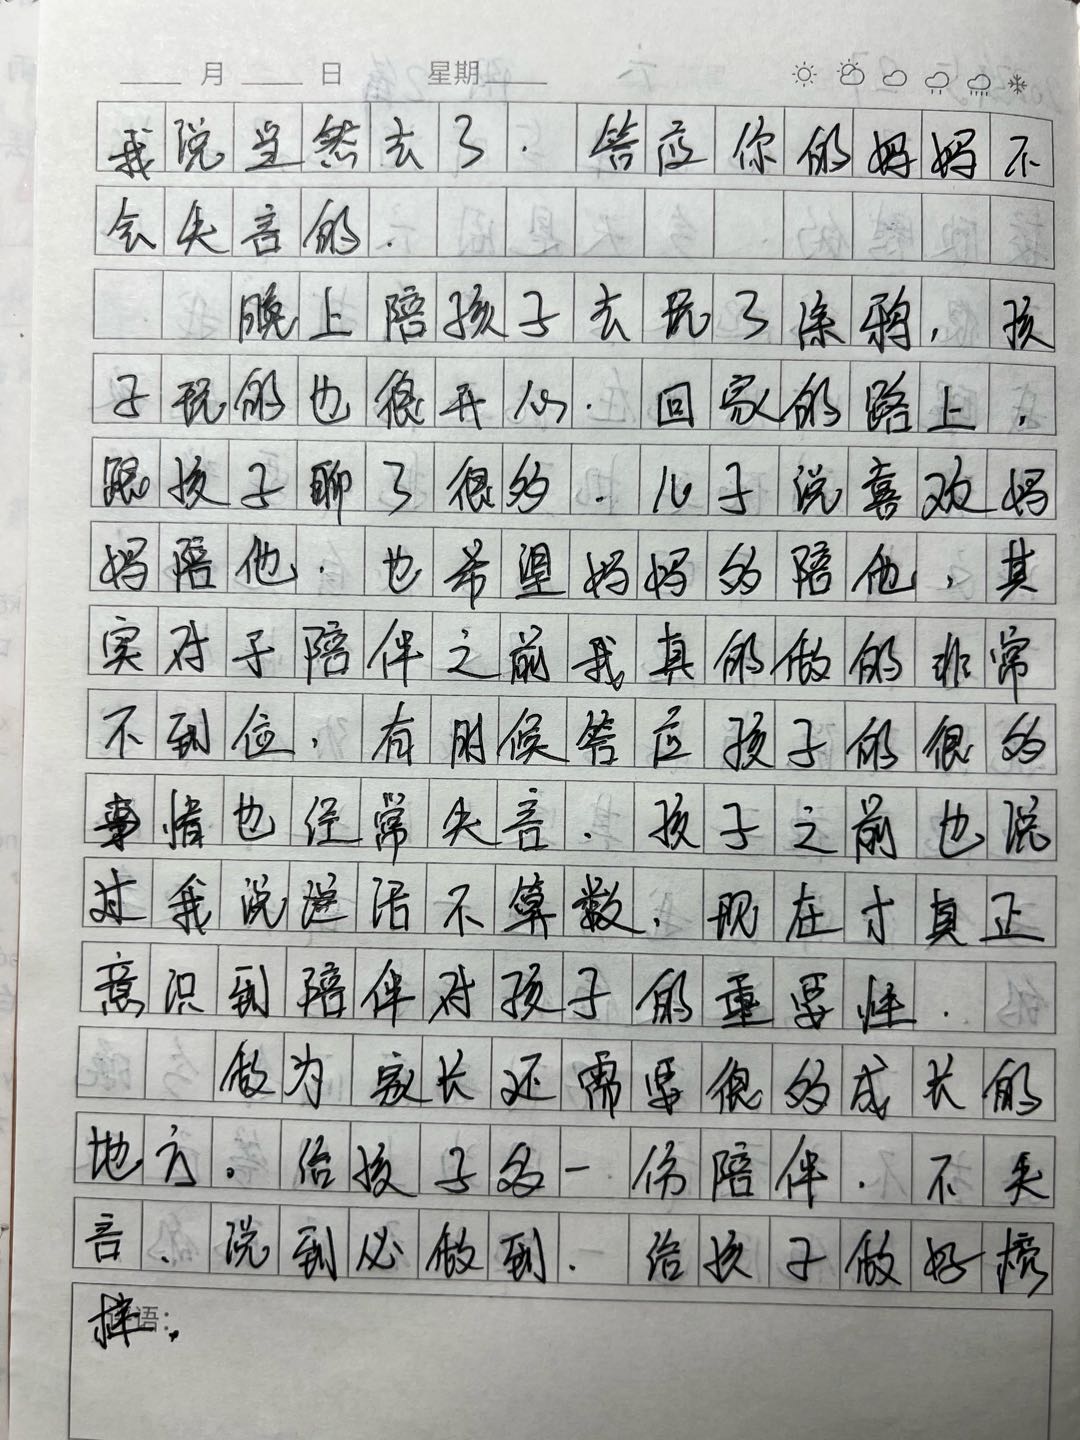 ____月____日 星期____
我说当然去了. 答应你的妈妈不
会失言的.
晚上陪孩子去玩了涂鸦, 孩
子玩的也很开心. 回家的路上,
跟孩子聊了很多. 儿子说喜欢妈
妈陪他. 也希望妈妈多陪他, 其
实对于陪伴之前我真的做的非常
不到位, 有时候答应孩子的很多
事情也经常失言. 孩子之前也说
过我说说话不算数, 现在才真正
意识到陪伴对孩子的重要性.
做为家长还需要很多成长的
地方。给孩子多一份陪伴. 不失
言、说到必做到. 给孩子做好榜
样。
语: